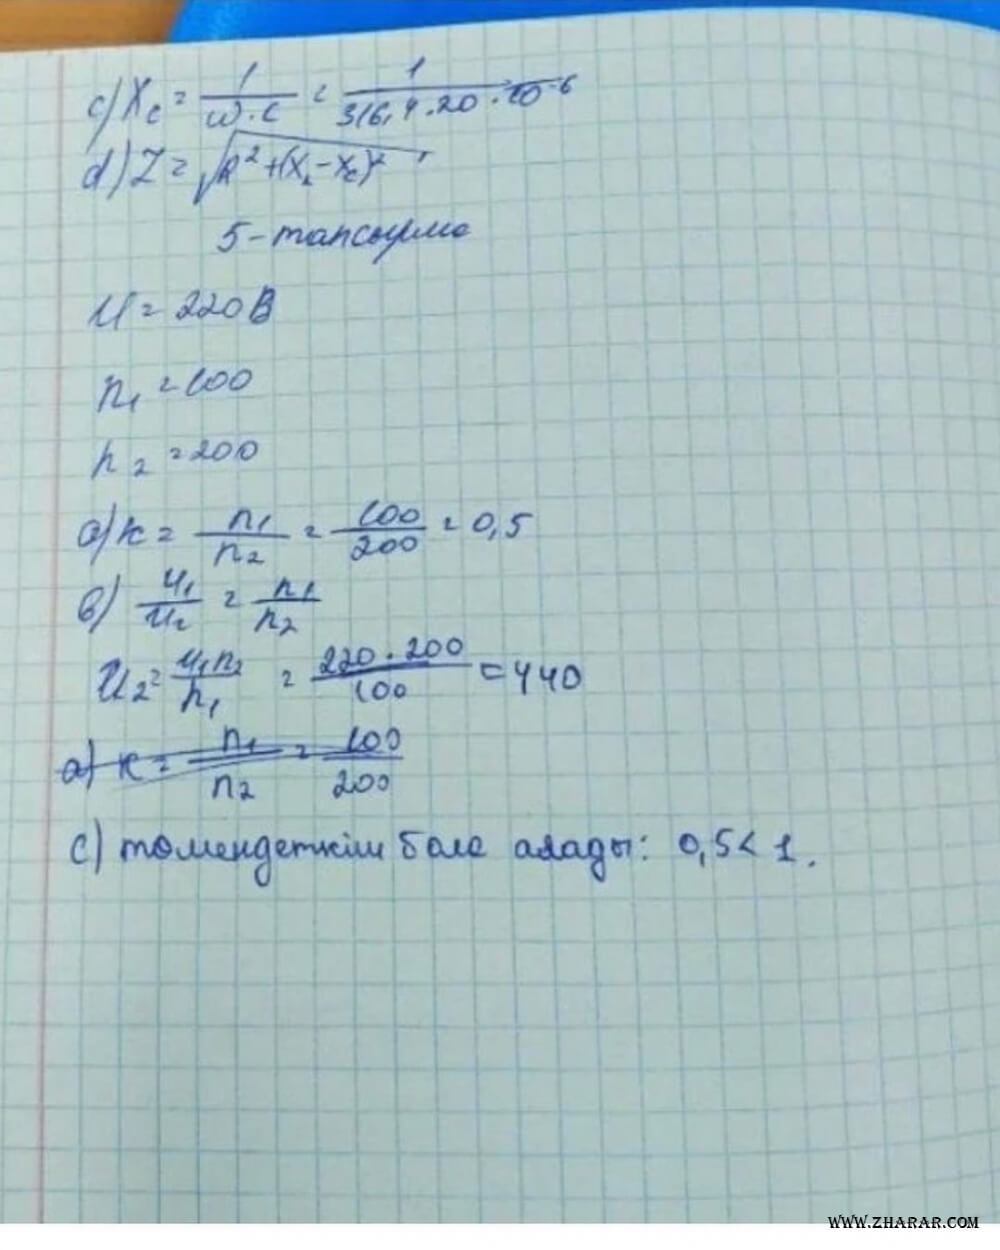 c) Xc = 1/ω·c = 1/316,4·20·10^-6
d) Z = √R²+(X_L-Xc)²
5-тапсырма
U = 220В
n₁ = 100
n₂ = 200
a) к = n₁/n₂ = 100/200 = 0,5
в) U₁/U₂ = n₁/n₂
U₂ = U₁n₂/n₁ = 220·200/100 = 440
a) к = n₁/n₂ = 100/200
c) төмендеткіш бола алады: 0,5 < 1.
WWW.ZHARAR.COM